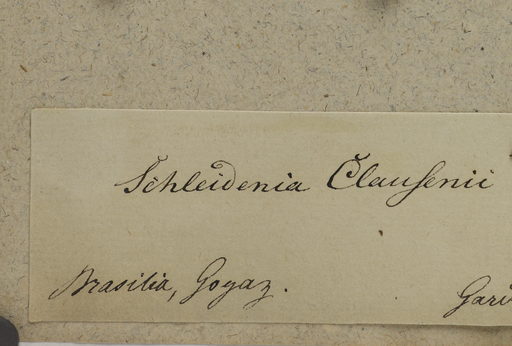 Schleidenia Clausenii
Brasilia, Gogaz.